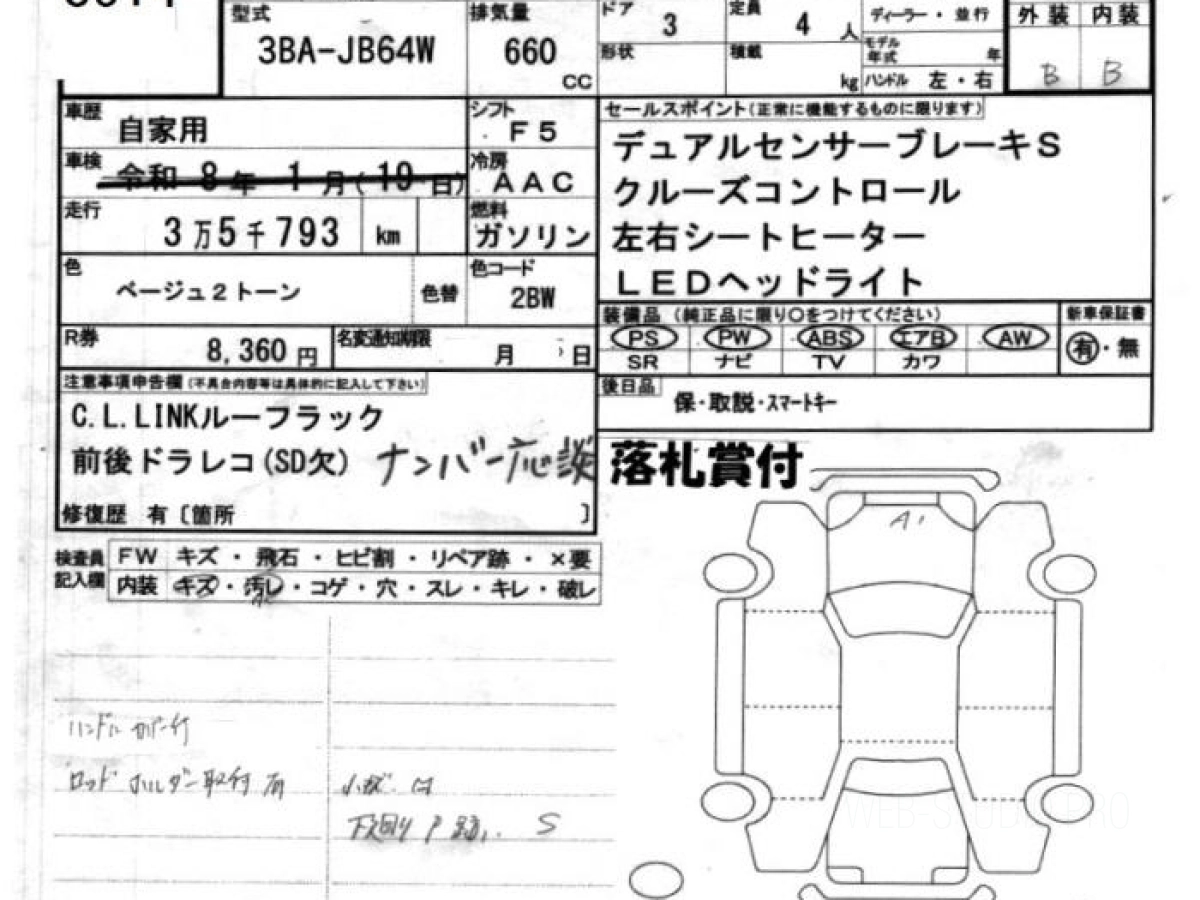 型式 排気量 ドア 定員 ディーラー・並行 外装 内装
3BA-JB64W 660 cc 3 4 人
形状 積載 kg モデル年式 年
ハンドル 左・右 B B
車歴 自家用 シフト F5
セールスポイント(正常に機能するものに限ります)
車検 令和 8年 1月(19日) 冷房 AAC
デュアルセンサーブレーキS
クルーズコントロール
走行 3万5千793 km 燃料 ガソリン
左右シートヒーター
LEDヘッドライト
色 ベージュ2トーン 色替 色コード 2BW
装備品 (純正品に限り○をつけてください) 新車保証書
PS PW ABS エアB AW 有・無
SR ナビ TV カワ
R券 8,360円 名変通知期限 月 日
後日品 保・取説・スマートキー
注意事項申告欄(不具合内容等は具体的に記入して下さい)
C.L.LINKルーフラック
前後ドラレコ(SD欠) ナンバー応談
落札賞付
修復歴 有〔箇所 〕
A1
検査員記入欄
FW キズ・飛石・ヒビ割・リペア跡・×要
内装 キズ・汚レ・コゲ・穴・スレ・キレ・破レ
ハンドルカバー付
ロッドホルダー取付有
下廻り S
WEB-STUDIO.PRO